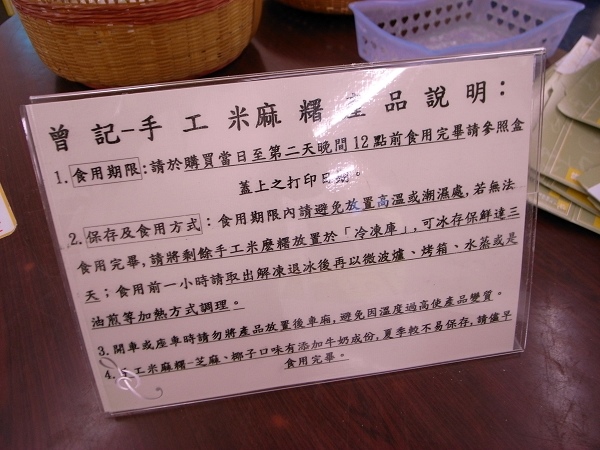 曾記-手工米麻糬產品說明：
1. 食用期限:請於購買當日至第二天晚間12點前食用完畢請參照盒
蓋上之打印日期。
2. 保存及食用方式：食用期限內請避免放置高溫或潮濕處,若無法
食用完畢,請將剩餘手工米麽糬放置於「冷凍庫」,可冰存保鮮達三
天；食用前一小時請取出解凍退冰後再以微波爐、烤箱、水蒸或是
油煎等加熱方式調理。
3. 開車或座車時請勿將產品放置後車廂,避免因溫度過高使產品變質。
4. 手工米麻糬-芝麻、椰子口味有添加牛奶成份,夏季較不易保存,請儘早
食用完畢。